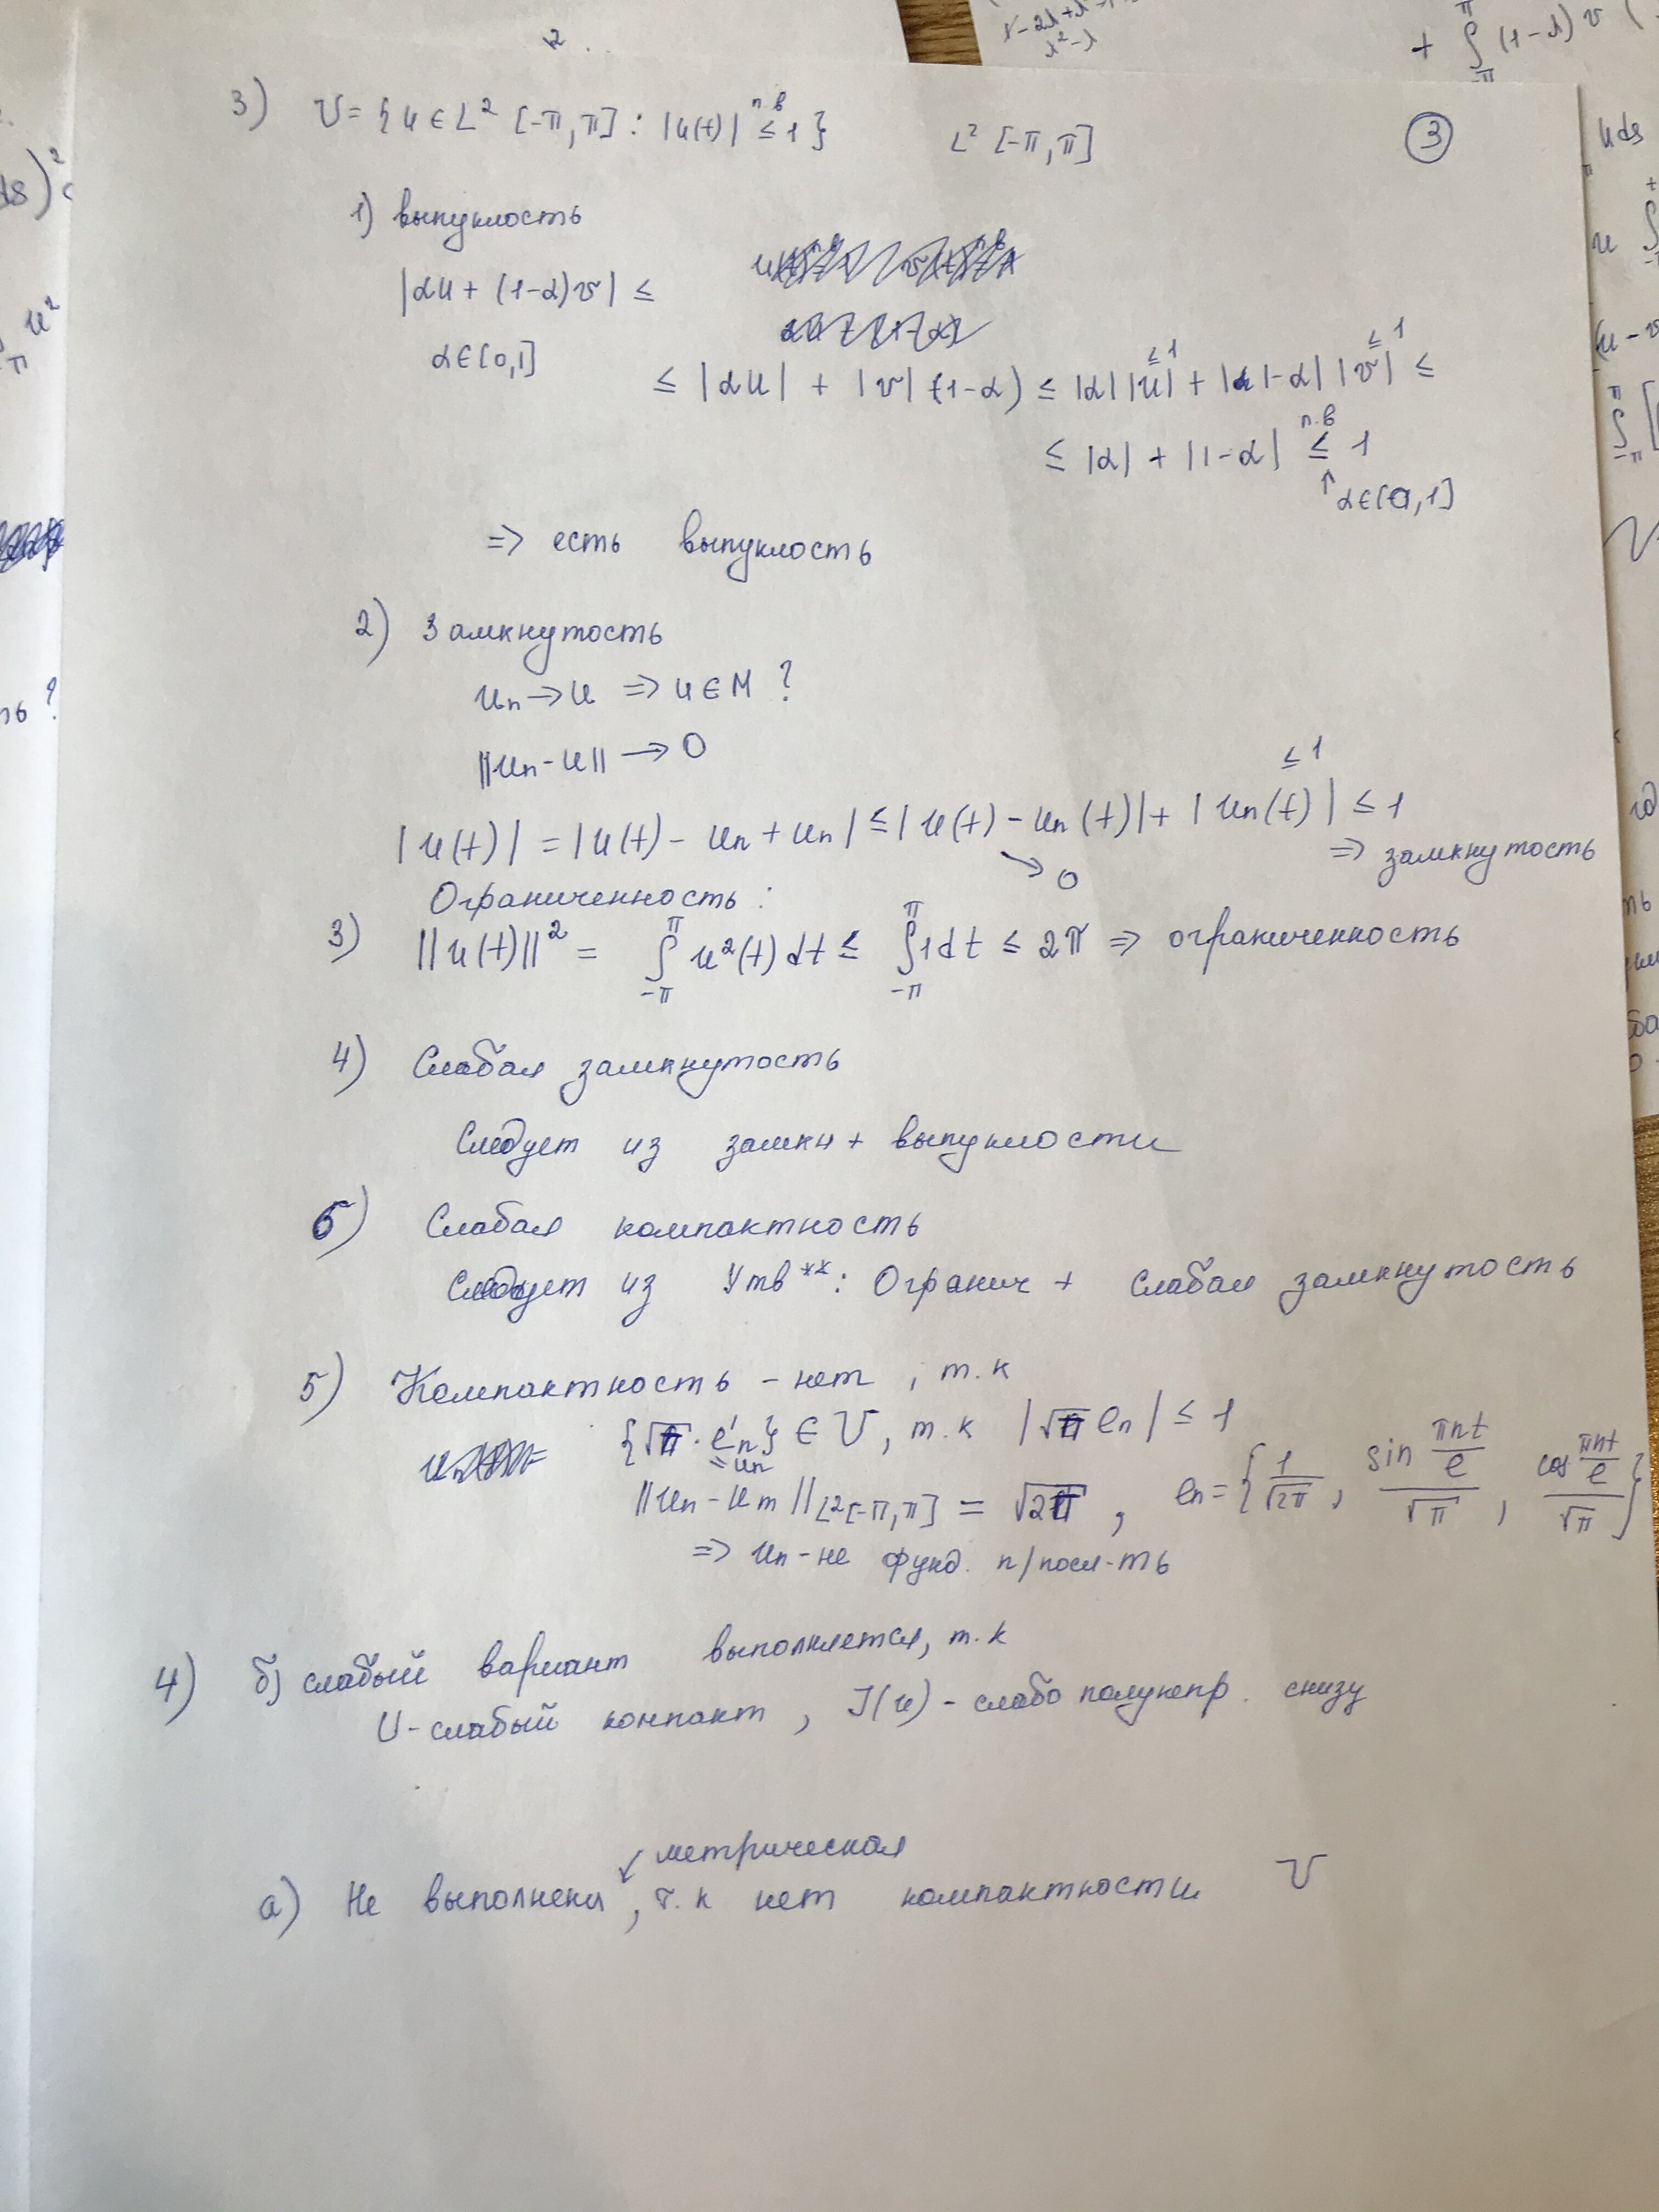 3) U = { u ∈ L² [-π, π] : |u(t)| ≤ 1 } п.в L² [-π, π] ③
1) выпуклость
|αu + (1-α)v| ≤
α ∈ [0,1]
≤ |αu| + |v| (1-α) ≤ |α| |u| + |1-α| |v| ≤
≤1 ≤1
≤ |α| + |1-α| ≤ 1 п.в
↑ α ∈ [0,1]
=> есть выпуклость
2) Замкнутость
uₙ → u => u ∈ M ?
||uₙ - u|| → 0
|u(t)| = |u(t) - uₙ + uₙ| ≤ |u(t) - uₙ(t)| + |uₙ(t)| ≤ 1
≤ 1
→ 0
=> замкнутость
Ограниченность:
3) ||u(t)||² = ∫_{-π}^{π} u²(t) dt ≤ ∫_{-π}^{π} 1 dt ≤ 2π => ограниченность
4) Слабая замкнутость
Следует из замкн + выпуклости
6) Слабая компактность
Следует из Утв**: Огранич + слабая замкнутость
5) Компактность - нет, т.к
{√π · eₙ} ∈ U, т.к |√π eₙ| ≤ 1
= uₙ
||uₙ - uₘ||_{L²[-π, π]} = √2π , eₙ = { 1/√2π , sin(πnt/e)/√π , cos(πnt/e)/√π }
=> uₙ - не фунд. п/посл-ть
4) б) слабый вариант выполняется, т.к
U - слабый компакт, J(u) - слабо полунепр. снизу
↙ метрическая
а) Не выполнена, т.к нет компактности U